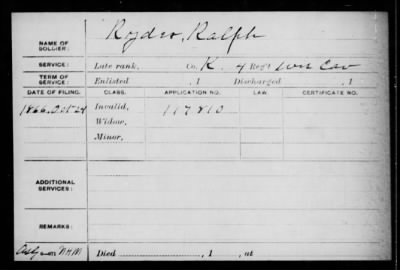 NAME OF SOLDIER: Ryder, Ralph
SERVICE: Late rank, Co. K, 4 Reg't Wis Cav
TERM OF SERVICE: Enlisted , 1 Discharged , 1
DATE OF FILING. CLASS. APPLICATION NO. LAW. CERTIFICATE NO.
1866, Oct 29 Invalid, 117810
Widow,
Minor,
ADDITIONAL SERVICES:
REMARKS:
Died , 1 , at